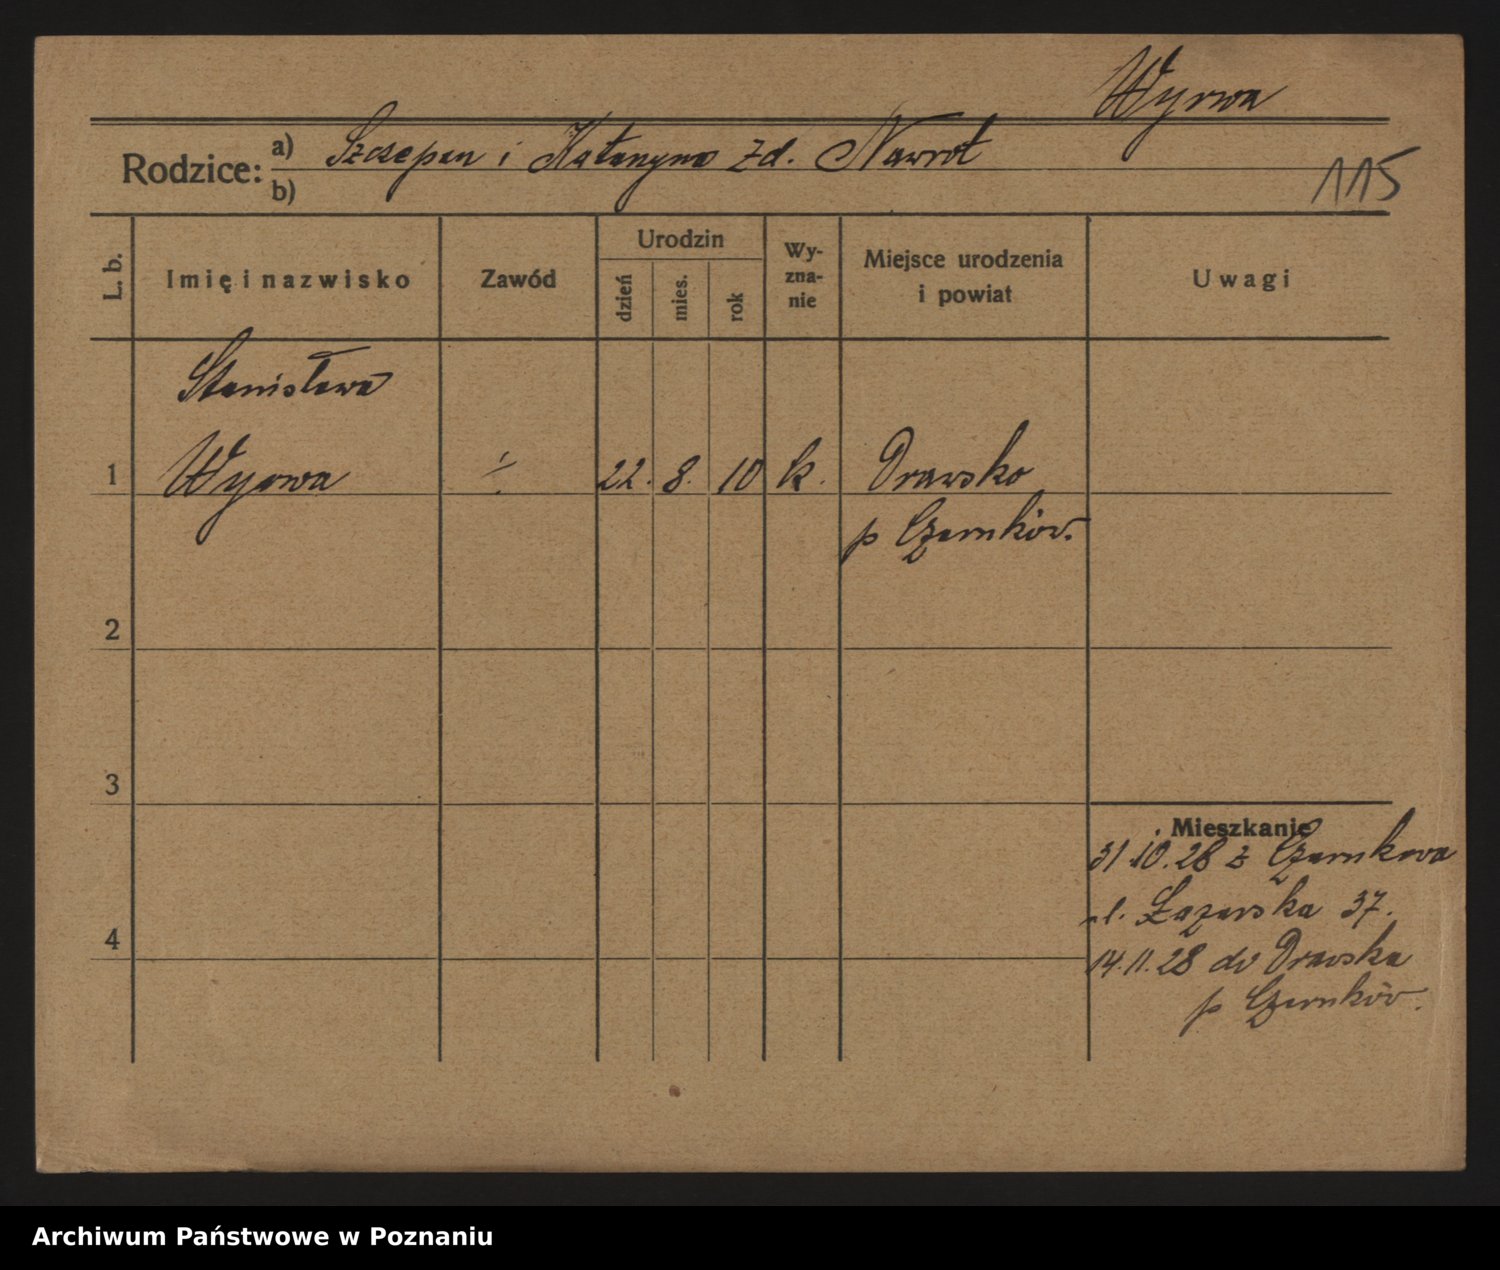 Wyrwa
Rodzice: a) Szczepan i Katarzyna zd. Nawrot
b)
115
L. b.
Imię i nazwisko
Zawód
Urodzin
dzień
mies.
rok
Wy-
zna-
nie
Miejsce urodzenia
i powiat
Uwagi
Stanisława
1 Wyrwa ÷ 22. 8. 10 k. Drawsko
p Czarnków.
2
3
Mieszkanie
31.10.28 z Czarnkowa
ul. Łazarska 37.
4
14.11.28 do Drawska
p Czarnków.
Archiwum Państwowe w Poznaniu